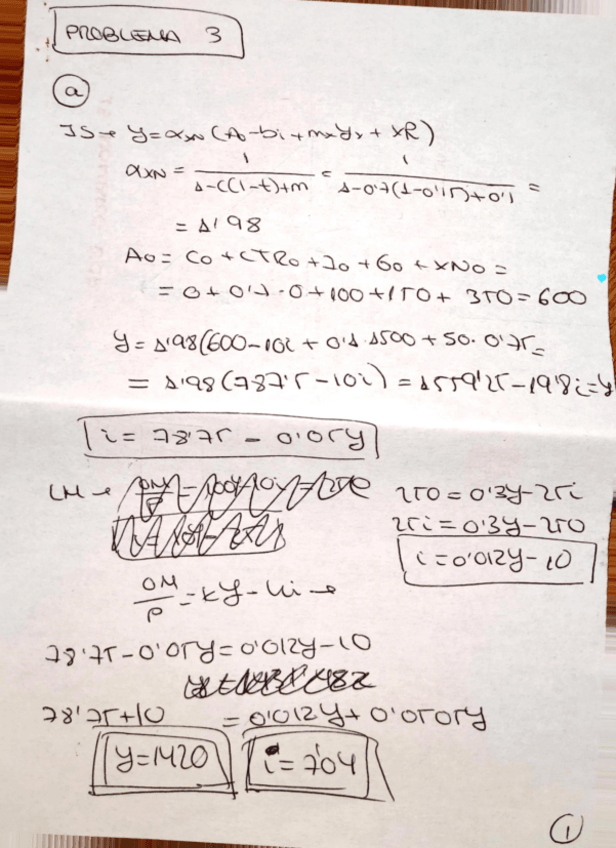 PROBLEMA 3
a
IS → Y = αXN (A0 - bi + mxYx + xR)
αXN = 1 / 1-c(1-t)+m = 1 / 1-0'7(1-0'15)+0'1 =
= 1'98
A0 = C0 + cTR0 + I0 + G0 + XN0 =
= 0 + 0'7·0 + 100 + 150 + 350 = 600
Y = 1'98(600 - 10i + 0'1·1500 + 50·0'75 =
= 1'98(787'5 - 10i) = 1559'25 - 19'8i = Y
i = 78'75 - 0'05Y
LM →
250 = 0'3Y - 25i
25i = 0'3Y - 250
i = 0'012Y - 10
OM/P = kY - hi →
78'75 - 0'05Y = 0'012Y - 10
78'75 + 10 = 0'012Y + 0'0505Y
Y = 1420
i = 7'04
1